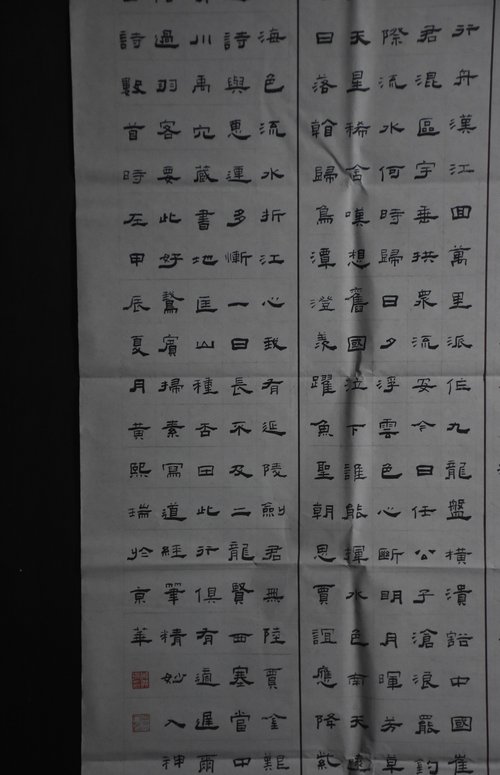 行舟漢江回萬里派作九龍盤橫潰豁中國崔
君混區宇垂拱眾流安今日任公子滄浪罷釣
際流水何時歸日夕浮雲色心斷明月暉芳草
天星稀舍嘆想舊國泣下誰能揮水色南天遠
日落看歸鳥潭澄羨躍魚聖朝思賈誼應降紫
海色流水折江心我有延陵劍君無陸賈金艱
詩與惠連多慚一日長不及二龍賢西塞當中
川禹穴藏書地匡山種杏田此行俱有適遲爾
過羽客要此好鵞賓掃素寫道經筆精妙入神
詩數首時在甲辰夏月黃熙瑞於京華